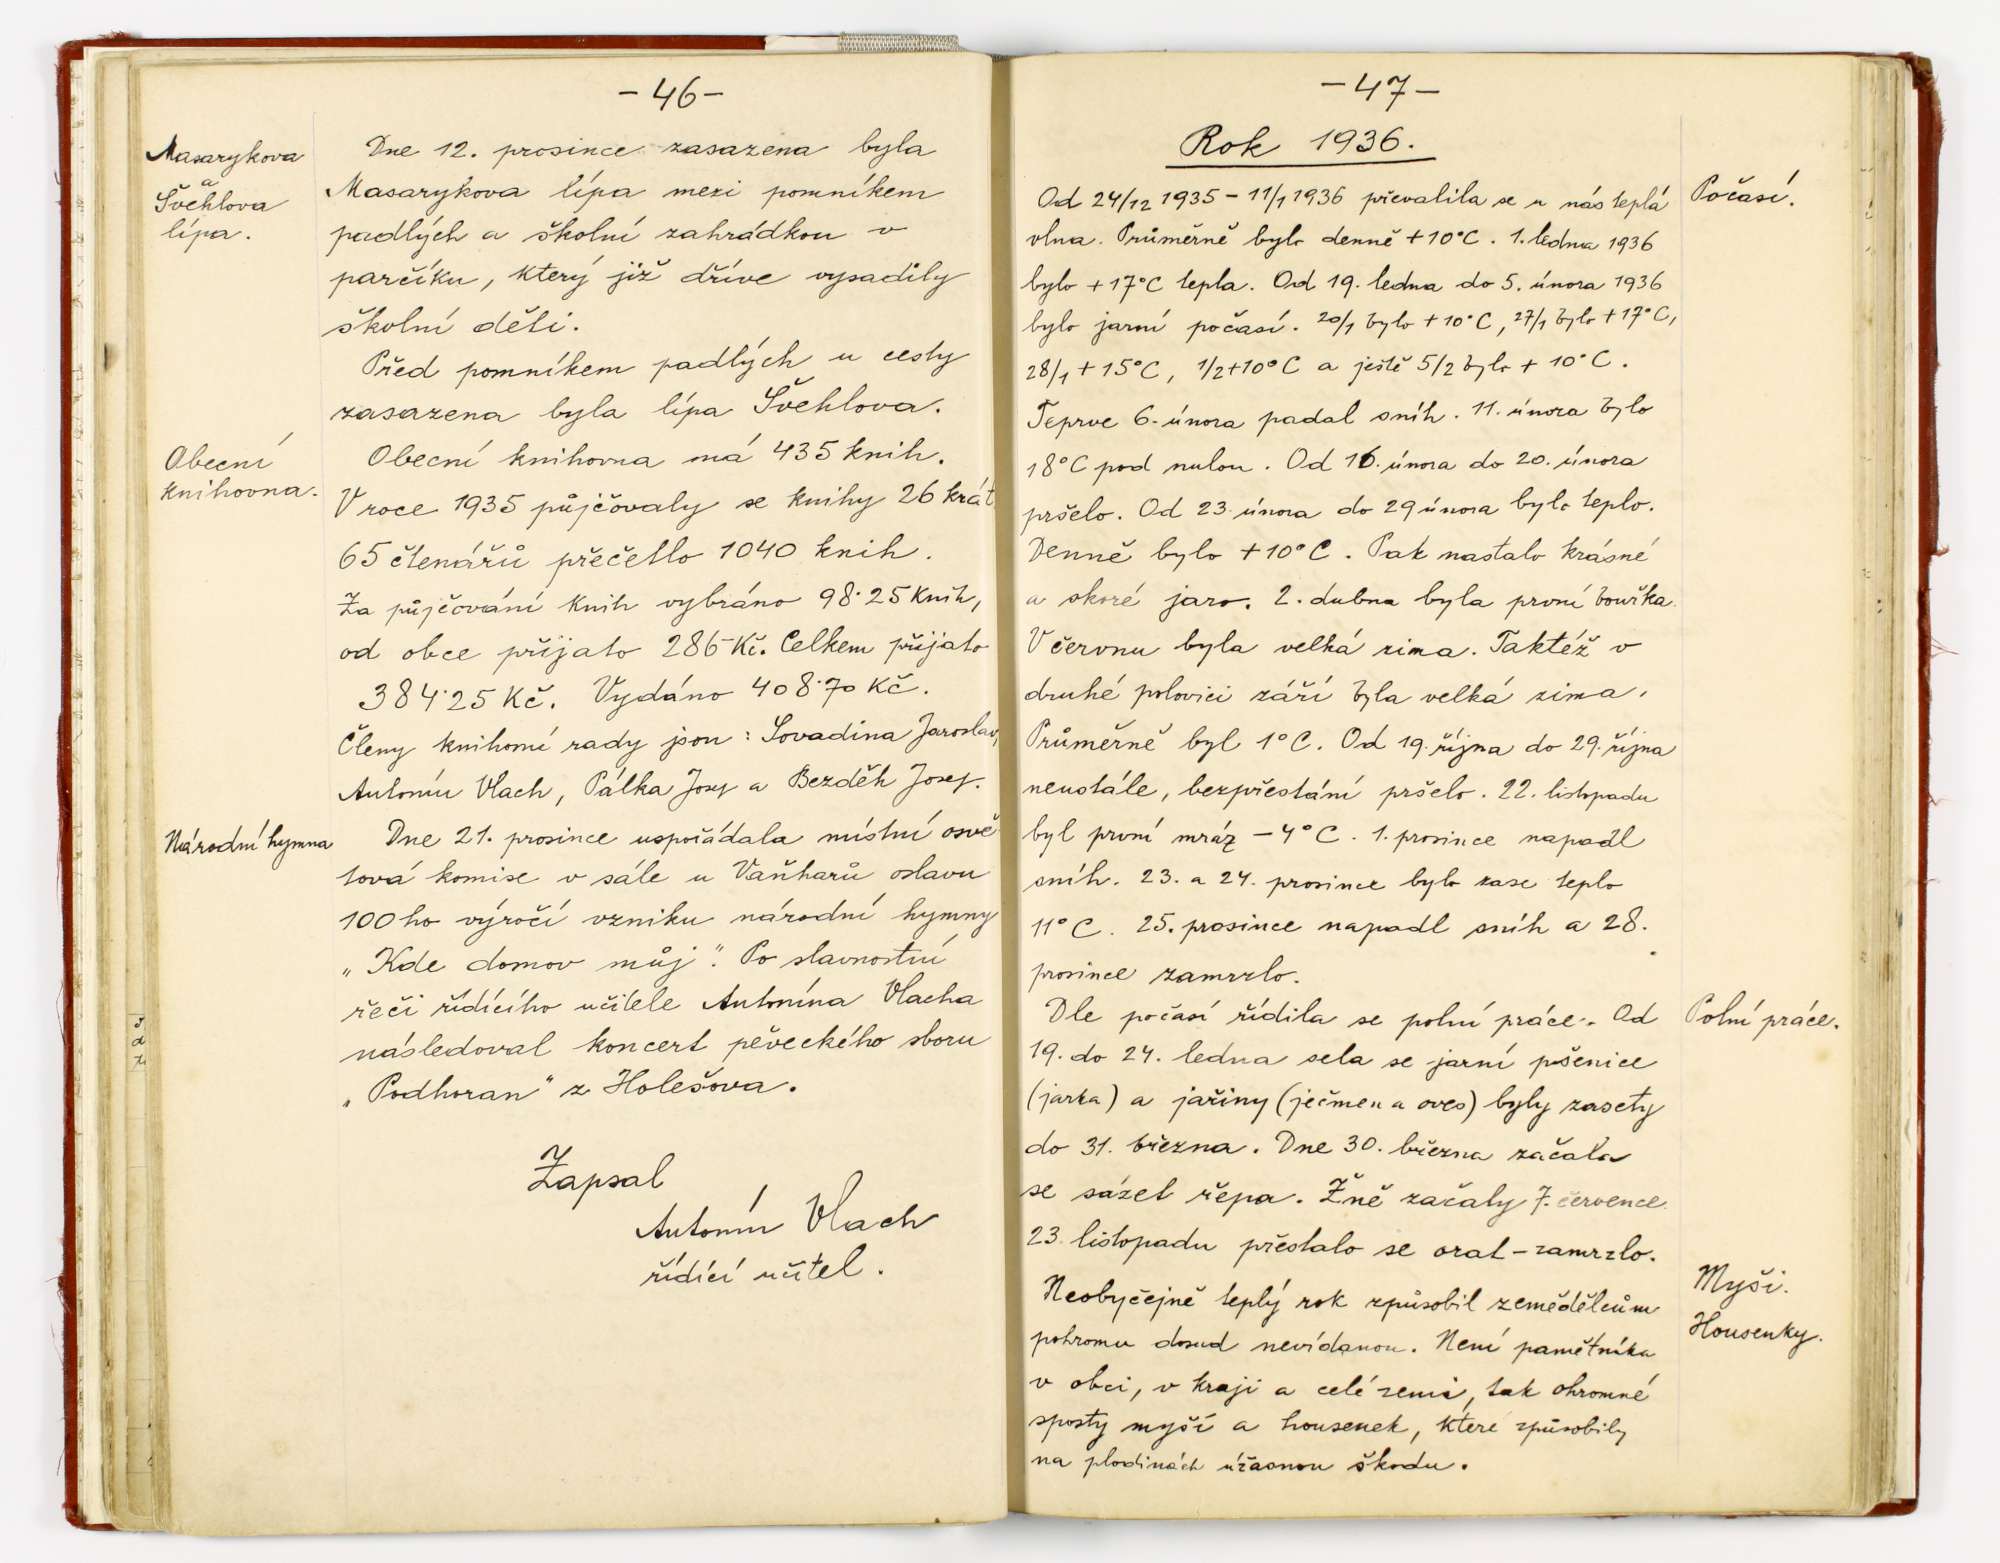 - 46 -
Masarykova
a
Švehlova
lípa.
Dne 12. prosince zasazena byla
Masarykova lípa mezi pomníkem
padlých a školní zahrádkou v
parčíku, který již dříve vysadily
školní děti.
Před pomníkem padlých u cesty
zasazena byla lípa Švehlova.
Obecní
knihovna.
Obecní knihovna má 435 knih.
V roce 1935 půjčovaly se knihy 26 krát
65 čtenářů přečetlo 1040 knih.
Za půjčování knih vybráno 98·25 Knih,
od obce přijato 286 Kč. Celkem přijato
384·25 Kč. Vydáno 408·70 Kč.
Členy knihovní rady jsou: Sovadina Jaroslav,
Antonín Vlach, Pálka Josef a Bezděk Josef.
Národní hymna
Dne 21. prosince uspořádala místní osvě
tová komise v sále u Vaňharů oslavu
100ho výročí vzniku národní hymny
„Kde domov můj". Po slavnostní
řeči řídícího učitele Antonína Vlacha
následoval koncert pěveckého sboru
„Podhoran" z Holešova.
Zapsal
Antonín Vlach
řídící učitel.
- 47 -
Rok 1936.
Počasí.
Od 24/12 1935 - 11/1 1936 převalila se u nás teplá
vlna. Průměrně bylo denně +10°C. 1. ledna 1936
bylo +17°C tepla. Od 19. ledna do 5. února 1936
bylo jarní počasí. 20/1 bylo +10°C, 27/1 bylo +17°C,
28/1 +15°C, 1/2 +10°C a ještě 5/2 bylo +10°C.
Teprve 6. února padal sníh. 11. února bylo
18°C pod nulou. Od 16. února do 20. února
pršelo. Od 23. února do 29 února bylo teplo.
Denně bylo +10°C. Pak nastalo krásné
a skoré jaro. 2. dubna byla první bouřka.
V červnu byla velká zima. Taktéž v
druhé polovici září byla velká zima.
Průměrně byl 1°C. Od 19. října do 29. října
neustále, bezpřestání pršelo. 22. listopadu
byl první mráz -4°C. 1. prosince napadl
sníh. 23. a 24. prosince bylo zase teplo
11°C. 25. prosince napadl sníh a 28.
prosince zamrzlo.
Polní práce.
Dle počasí řídila se polní práce. Od
19. do 24. ledna sela se jarní pšenice
(jarka) a jařiny (ječmen a oves) byly zasety
do 31. března. Dne 30. března začala
se sázet řepa. Žně začaly 7. července.
23. listopadu přestalo se orat - zamrzlo.
Myši.
Housenky.
Neobyčejně teplý rok způsobil zemědělcům
pohromu dosud nevídanou. Není pamětníka
v obci, v kraji a celé zemi, tak ohromné
spousty myší a housenek, které způsobily
na plodinách úžasnou škodu.